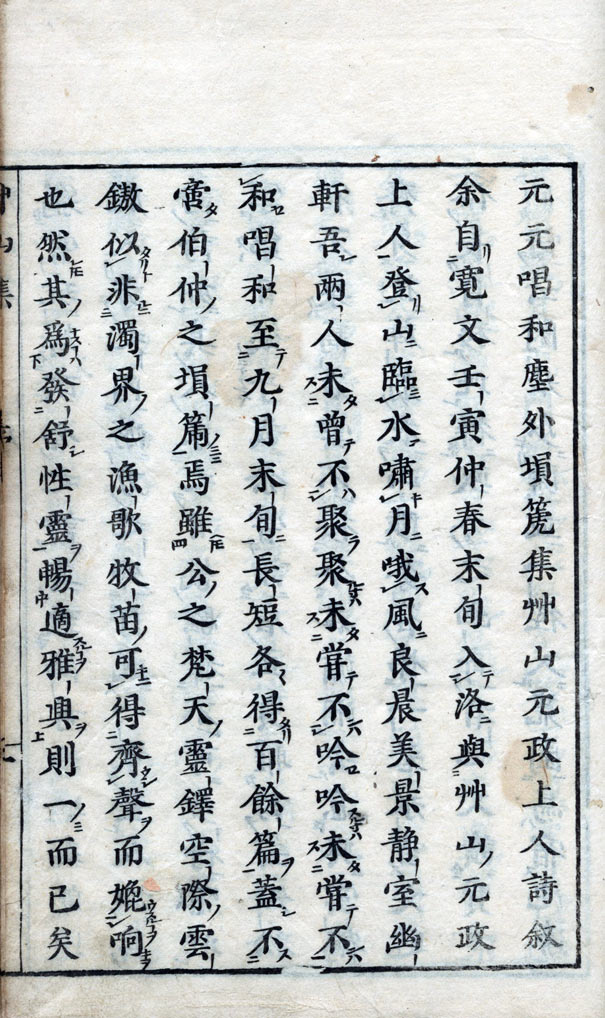 元元唱和塵外塤箎集艸山元政上人詩敘
余自寛文壬寅仲春末旬入洛與艸山元政
上人登山臨水嘯月哦風良晨美景靜室幽
軒吾兩人未曾不聚聚未甞不吟吟未甞不
和唱和至九月末旬長短各得百餘篇蓋不
啻伯仲之塤箎焉雖公之梵天靈鐸空際雲
似非濁界之漁歌牧苗可得齊聲而媲响
也然其爲發舒性靈暢適雅興則一而已矣